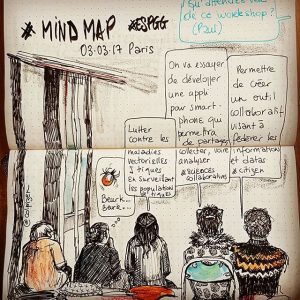 # MIND MAP #ESPGG
03.03.17 Paris
Qu'attendez vous
de ce workshop?
On va essayer
de développer
une appli
pour smart-
phone qui
permettra
de partager,
collecter, voire
analyser
#sciences
collaboratives
Permettre
de créer
un outil
collaboratif
visant à
fédérer les
information
et datas
#citizen
Lutter
contre les
maladies
vectorielles
à tiques
en surveillant
les population
de tiques
Beurk...
Beurk...